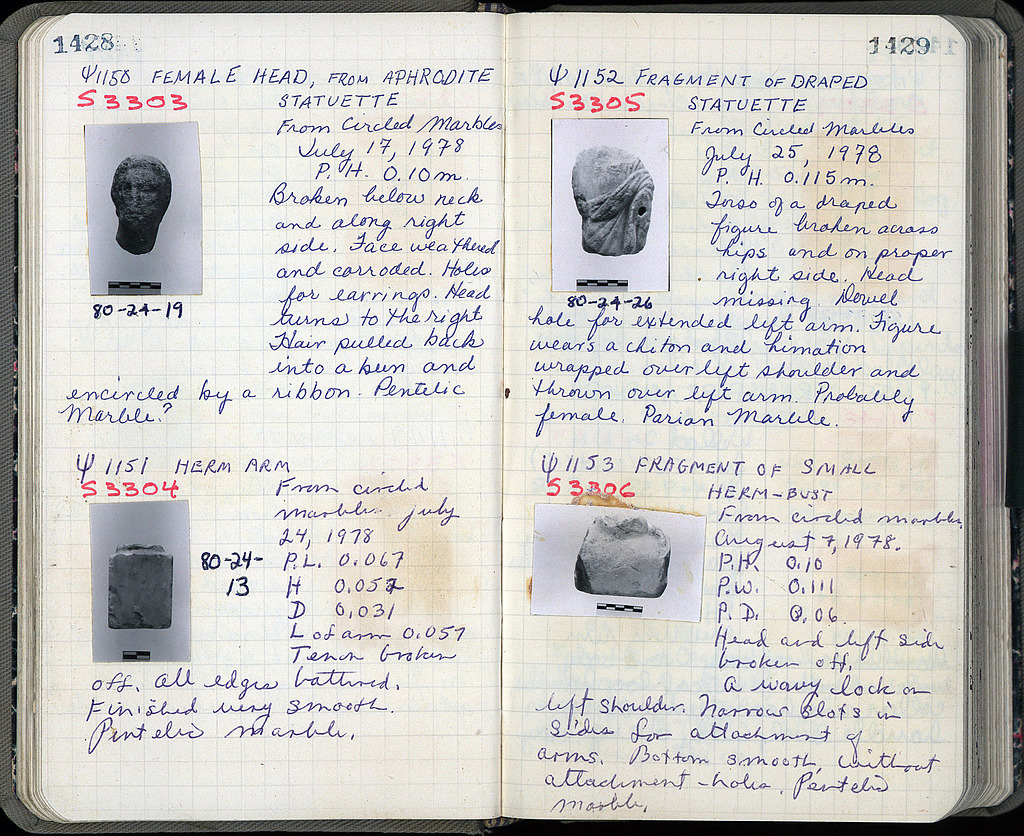 1428
Ψ1150 FEMALE HEAD, FROM APHRODITE
S3303 STATUETTE
From Circled Marbles
July 17, 1978
P. H. 0.10 m.
Broken below neck
and along right
side. Face weathered
and corroded. Holes
for earrings. Head
turns to the right
Hair pulled back
into a bun and
encircled by a ribbon. Pentelic
Marble?
80-24-19
Ψ1151 HERM ARM
S3304
From circled
marbles. July
24, 1978
P.L. 0.067
H 0.052
D 0.031
L of arm 0.057
Tenon broken
off. All edges battered.
Finished very smooth.
Pentelic marble.
80-24-
13
1429
Ψ1152 FRAGMENT OF DRAPED
S3305 STATUETTE
From Circled Marbles
July 25, 1978
P. H. 0.115 m.
Torso of a draped
figure broken across
hips and on proper
right side. Head
missing. Dowel
hole for extended left arm. Figure
wears a chiton and himation
wrapped over left shoulder and
thrown over left arm. Probably
female. Parian Marble.
80-24-26
Ψ1153 FRAGMENT OF SMALL
S3306 HERM-BUST
From circled marbles.
August 7, 1978.
P.H. 0.10
P.W. 0.111
P. D. 0.06.
Head and left side
broken off.
A wavy lock on
left shoulder. Narrow slots in
sides for attachment of
arms. Bottom smooth, without
attachment-holes. Pentelic
marble.